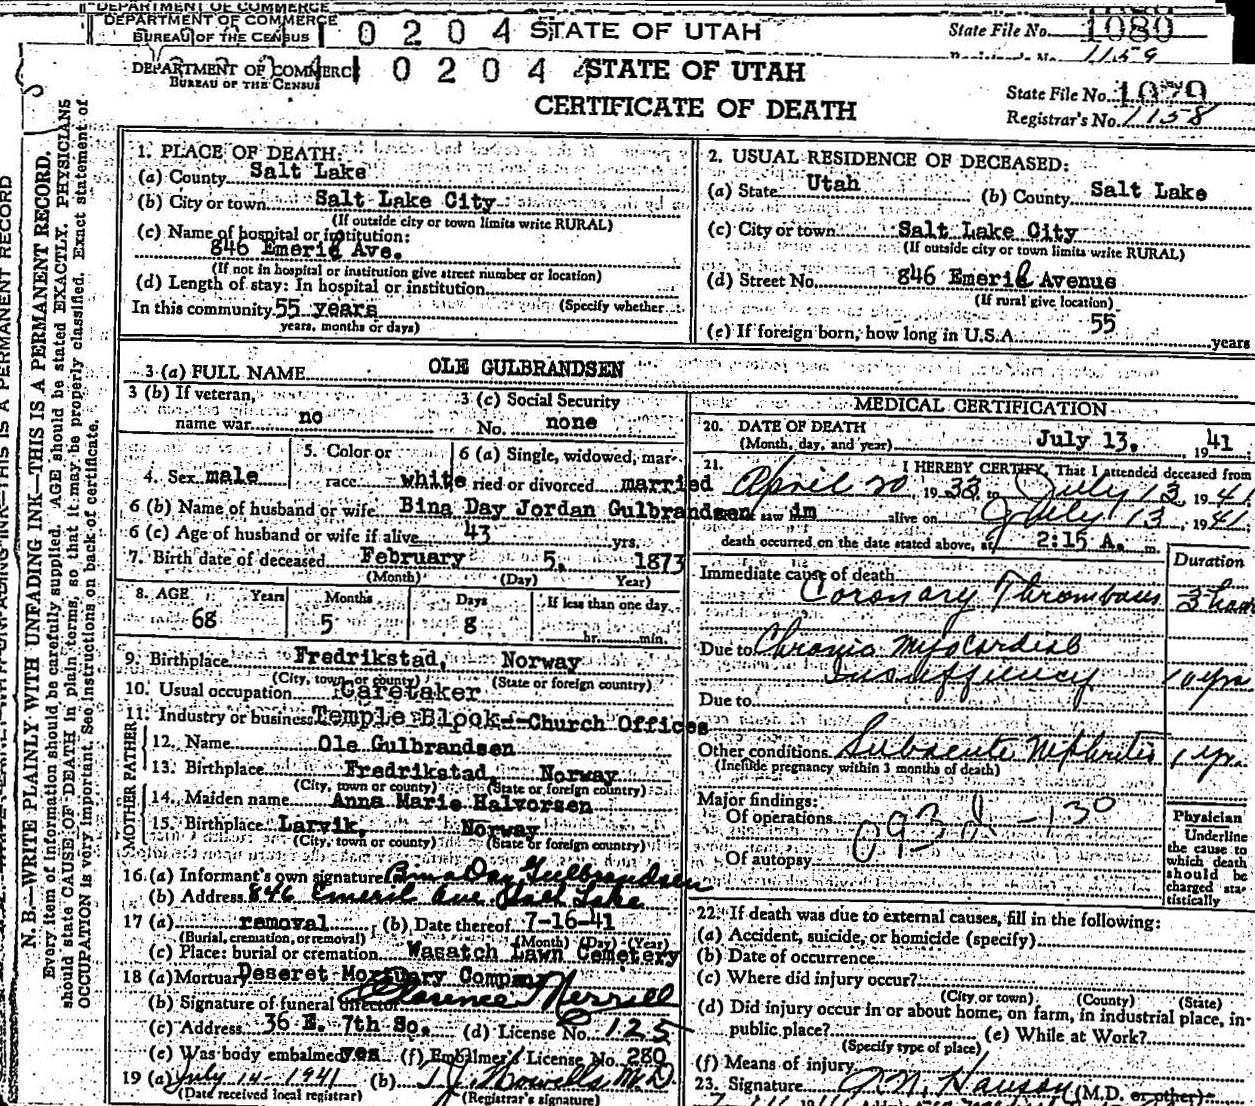 DEPARTMENT OF COMMERCE
DEPARTMENT OF COMMERCE
BUREAU OF THE CENSUS
0 2 0 4 STATE OF UTAH
State File No. 1080
Registrar's No. 1159
DEPARTMENT OF COMMERCE
BUREAU OF THE CENSUS
0 2 0 4 STATE OF UTAH
CERTIFICATE OF DEATH
State File No. 1079
Registrar's No. 1158
N. B.—WRITE PLAINLY WITH UNFADING INK—THIS IS A PERMANENT RECORD.
Every item of information should be carefully supplied. AGE should be stated EXACTLY. PHYSICIANS
should state CAUSE OF DEATH in plain terms, so that it may be properly classified. Exact statement of
OCCUPATION is very important. See instructions on back of certificate.
1. PLACE OF DEATH:
(a) County Salt Lake
(b) City or town Salt Lake City
(If outside city or town limits write RURAL)
(c) Name of hospital or institution:
846 Emeril Ave.
(If not in hospital or institution give street number or location)
(d) Length of stay: In hospital or institution
In this community 55 years (Specify whether
years, months or days)
2. USUAL RESIDENCE OF DECEASED:
(a) State Utah (b) County Salt Lake
(c) City or town Salt Lake City
(If outside city or town limits write RURAL)
(d) Street No. 846 Emeril Avenue
(If rural give location)
(e) If foreign born, how long in U.S.A. 55 years
3 (a) FULL NAME OLE GULBRANDSEN
3 (b) If veteran,
name war no
3 (c) Social Security
No. none
4. Sex male
5. Color or
race white
6 (a) Single, widowed, mar-
ried or divorced married
6 (b) Name of husband or wife Bina Day Jordan Gulbrandsen
6 (c) Age of husband or wife if alive 43 yrs.
7. Birth date of deceased February 5, 1873
(Month) (Day) Year)
8. AGE Years Months Days If less than one day
68 5 8 hr. min.
9. Birthplace Fredrikstad, Norway
(City, town or county) (State or foreign country)
10. Usual occupation Caretaker
11. Industry or business Temple Block--Church Offices
FATHER
12. Name Ole Gulbrandsen
13. Birthplace Fredrikstad, Norway
(City, town or county) (State or foreign country)
MOTHER
14. Maiden name Anna Marie Halvorsen
15. Birthplace Larvik, Norway
(City, town or county) (State or foreign country)
16. (a) Informant's own signature Bina Day Gulbrandsen
(b) Address 846 Emeril Ave Salt Lake
17 (a) removal (b) Date thereof 7-16-41
(Burial, cremation, or removal) (Month) (Day) (Year)
(c) Place: burial or cremation Wasatch Lawn Cemetery
18 (a) Mortuary Deseret Mortuary Company
(b) Signature of funeral director Clarence Merrill
(c) Address 36 E. 7th So. (d) License No. 125
(e) Was body embalmed yes (f) Embalmer's License No. 280
19 (a) July 14-1941 (b) T.J. Howells M.D.
(Date received local registrar) (Registrar's signature)
MEDICAL CERTIFICATION
20. DATE OF DEATH
(Month, day, and year) July 13, 1941;
21. I HEREBY CERTIFY, That I attended deceased from
April 20, 1933 to July 13, 1941
saw im alive on July 13, 1941.
death occurred on the date stated above, at 2:15 A. m.
Duration
Immediate cause of death
Coronary Thrombosis 3 hours
Due to Chronic Myocardial
Insufficiency 10 yrs
Due to
Other conditions Subacute Nephritis 1 yr.
(Include pregnancy within 3 months of death)
Major findings:
Of operations
Of autopsy
Physician
Underline
the cause to
which death
should be
charged sta-
tistically
22. If death was due to external causes, fill in the following:
(a) Accident, suicide, or homicide (specify)
(b) Date of occurrence
(c) Where did injury occur?
(City or town) (County) (State)
(d) Did injury occur in or about home, on farm, in industrial place, in-
public place? (e) While at Work?
(Specify type of place)
(f) Means of injury
23. Signature (M.D. or other)